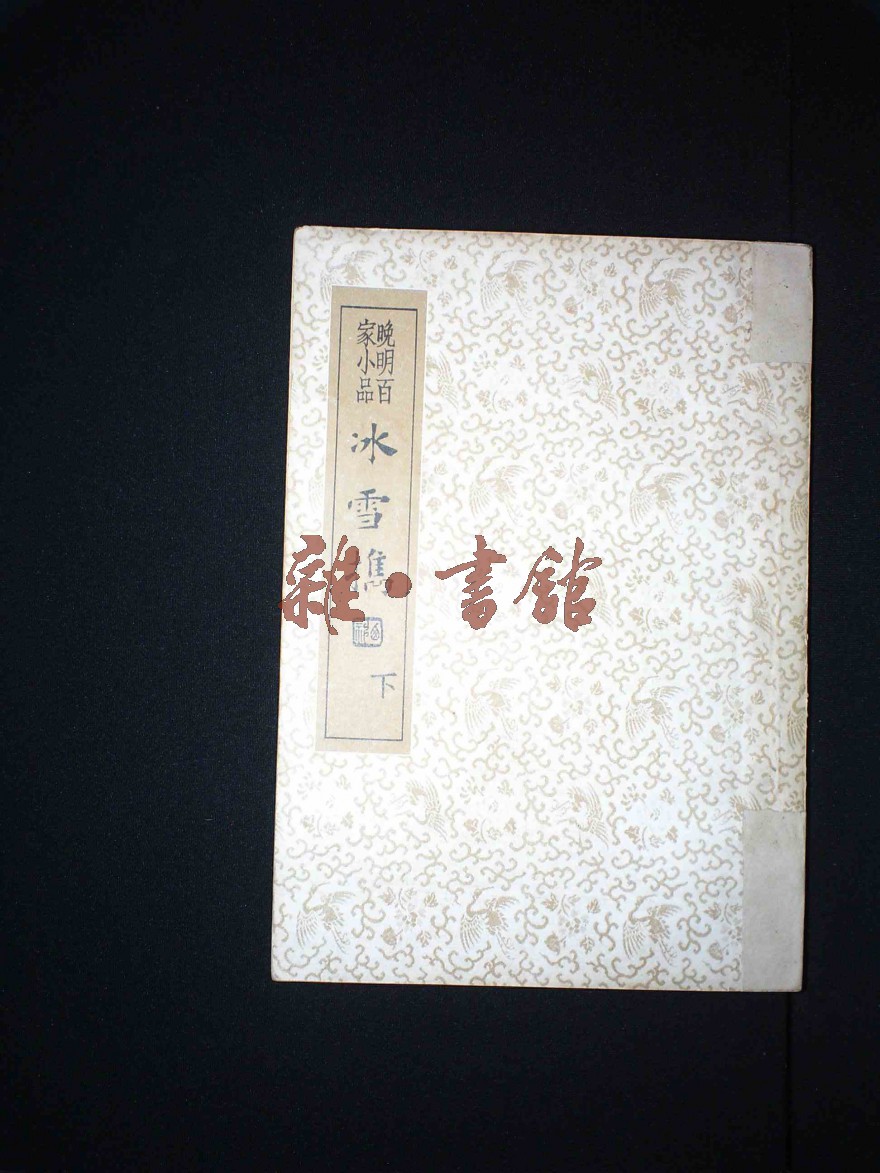 晚明百
家小品
冰雪攜
下
雜·書館